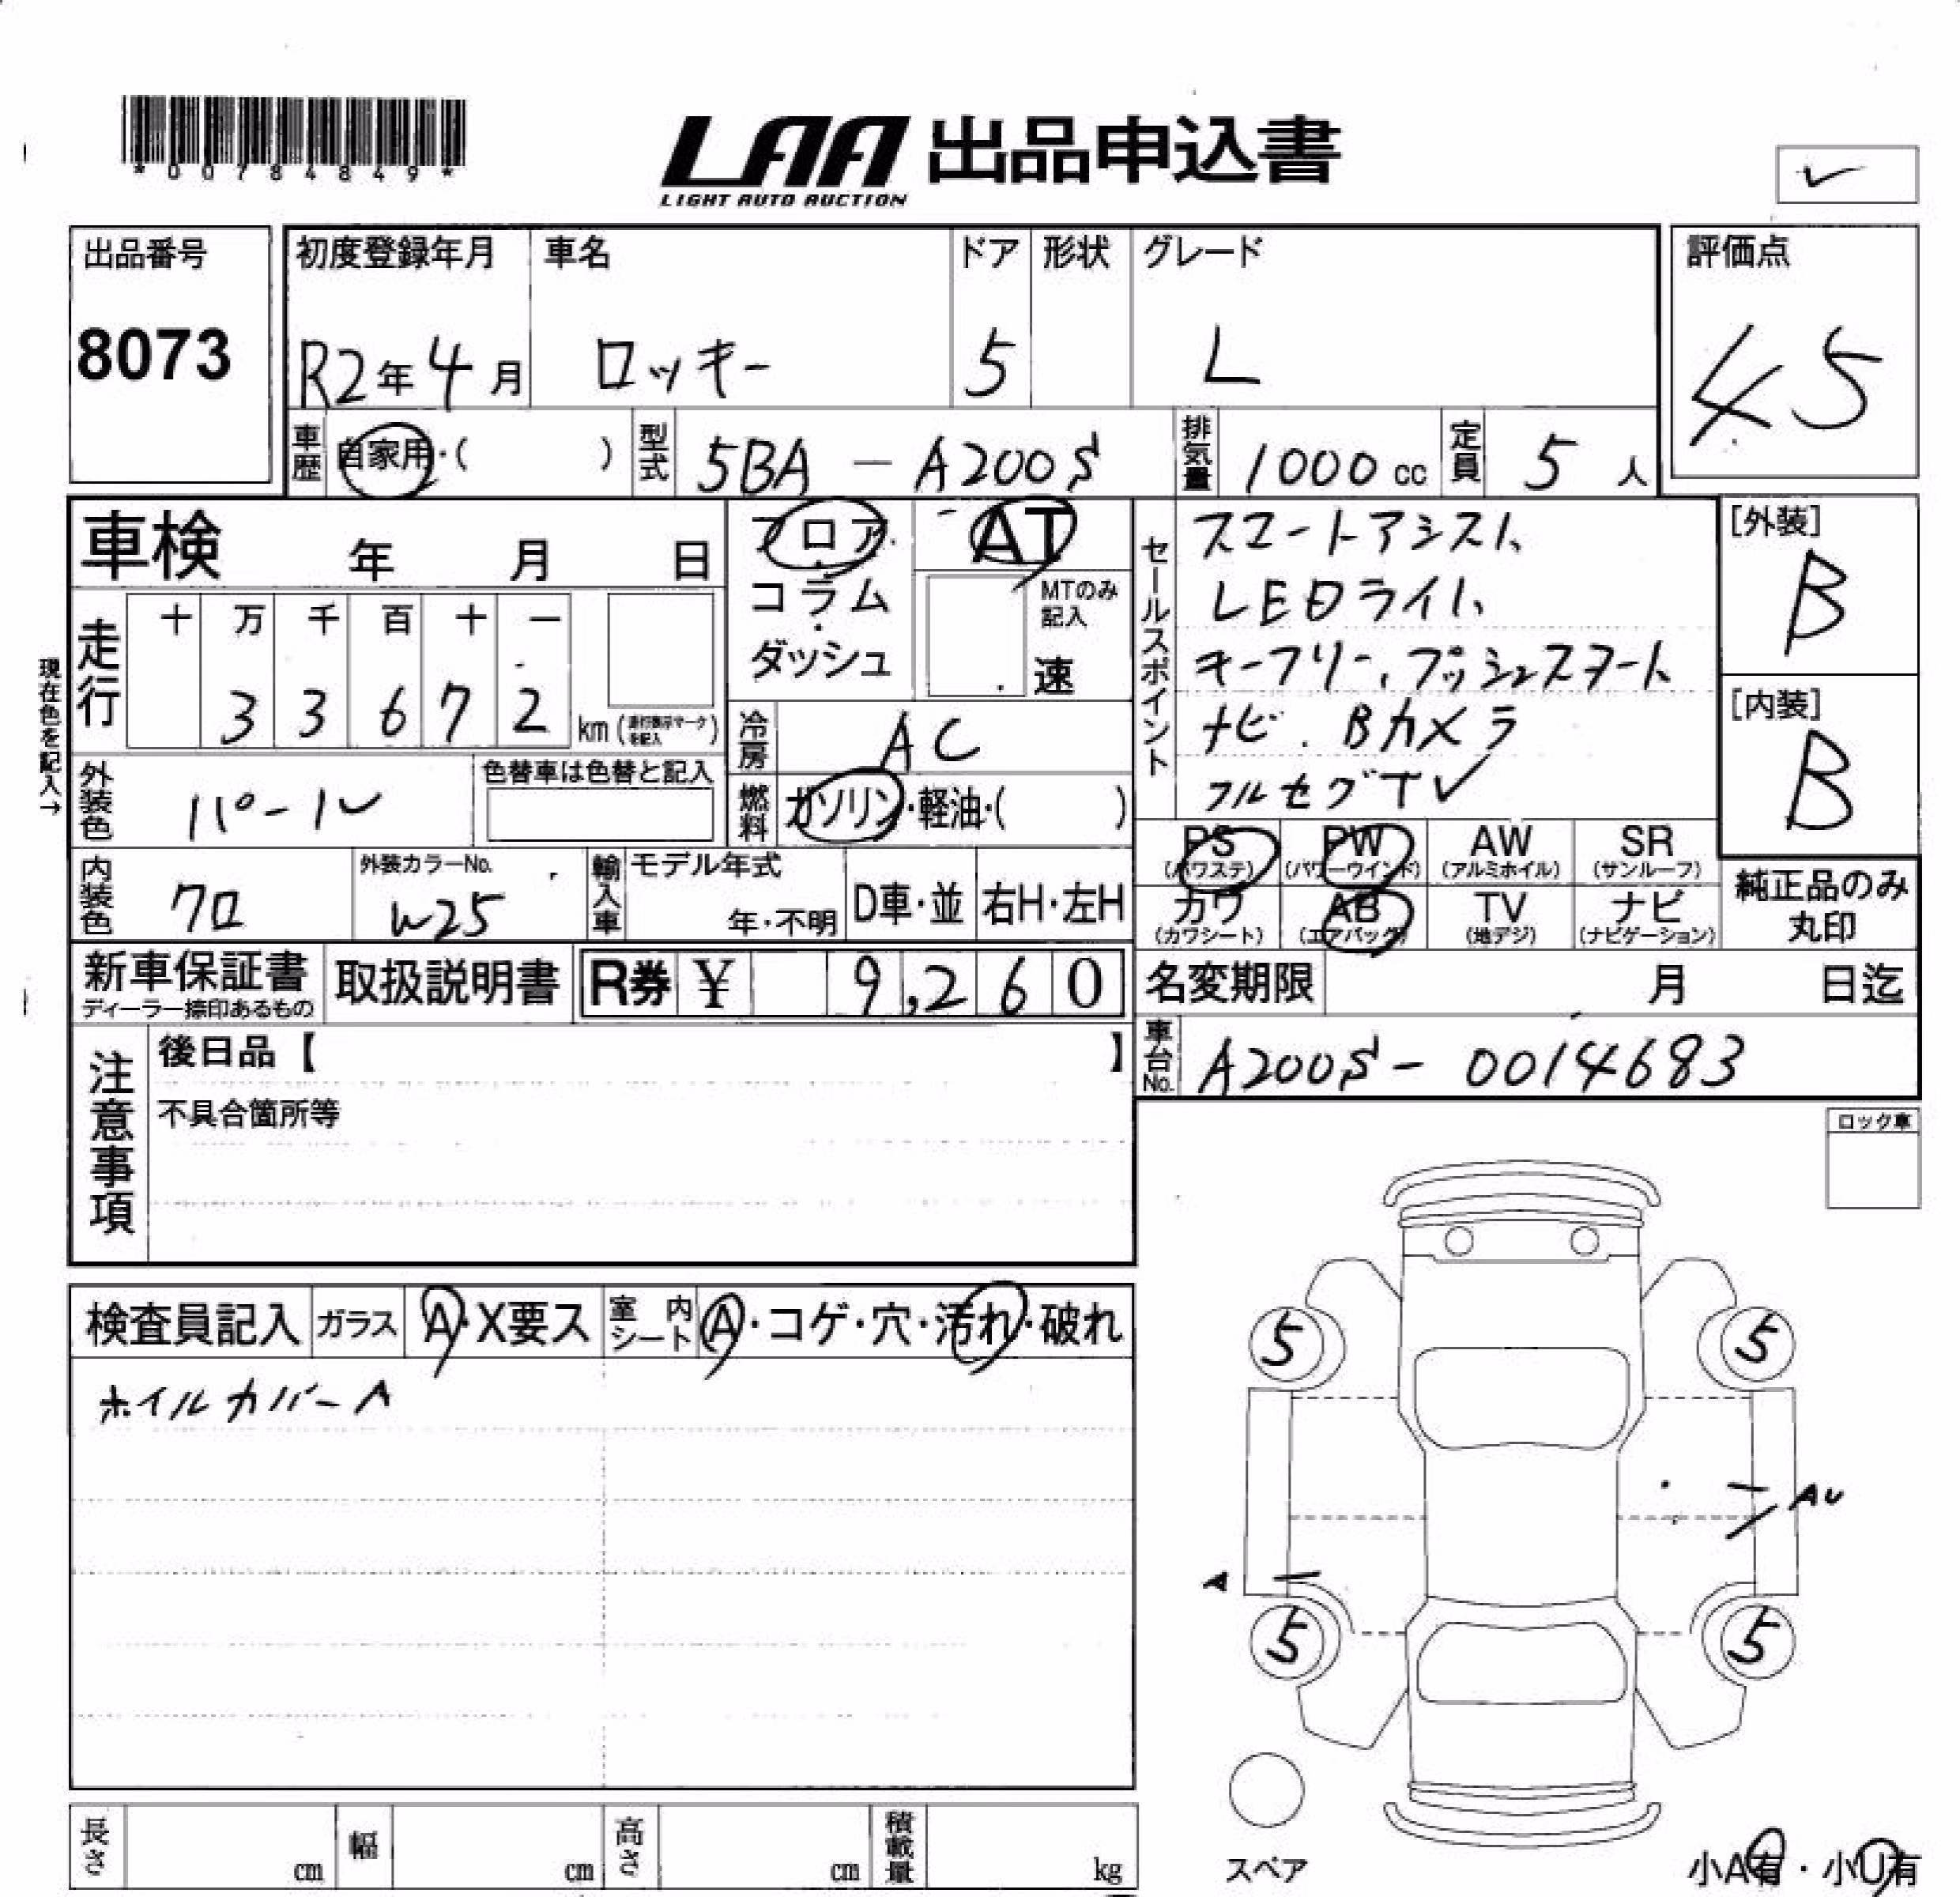 *00784849*
LAA 出品申込書
LIGHT AUTO AUCTION
出品番号
8073
初度登録年月 車名 ドア 形状 グレード
R2年4月 ロッキー 5 L
評価点
4 5
車歴 自家用・( ) 型式 5BA - A200S 排気量 1000cc 定員 5人
車検 年 月 日
フロア・
コラム
・
ダッシュ
AT
MTのみ
記入
速
走行 十 万 千 百 十 一
3 3 6 7 2 km
現在色を記入→
冷房 AC
外装色 パール
色替車は色替と記入
燃料 ガソリン・軽油・( )
セールスポイント
スマートアシスト、
LEDライト、
キーフリー、プッシュスタート
ナビ、Bカメラ
フルセグTV
[外装]
B
[内装]
B
内装色 クロ
外装カラーNo.
W25
輸入車 モデル年式
年・不明 D車・並 右H・左H
PS (パワステ) PW (パワーウインド) AW (アルミホイル) SR (サンルーフ)
カワ (カワシート) AB (エアバッグ) TV (地デジ) ナビ (ナビゲーション)
純正品のみ
丸印
新車保証書
ディーラー捺印あるもの
取扱説明書 R券 ¥ 9,260
名変期限 月 日迄
車台No. A200S- 0014683
注意事項
後日品【 】
不具合箇所等
ロック車
検査員記入 ガラス A・X要ス 室内シート A・コゲ・穴・汚れ・破れ
ホイルカバーA
5 5
AU
A
5 5
スペア
小A有・小U有
長さ cm 幅 cm 高さ cm 積載量 kg